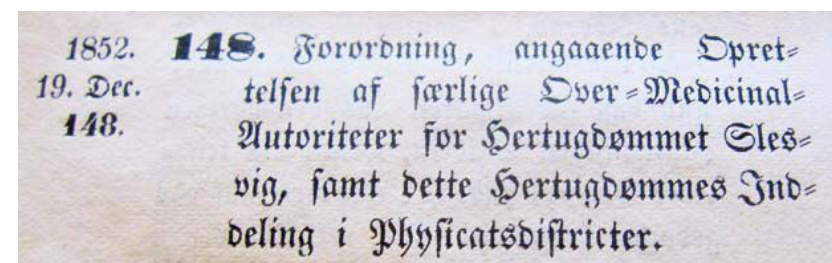 1852.
19. Dec.
148.
148. Forordning, angaaende Opret-
telsen af særlige Over-Medicinal-
Autoriteter for Hertugdømmet Sles-
vig, samt dette Hertugdømmes Ind-
deling i Physicatsdistricter.